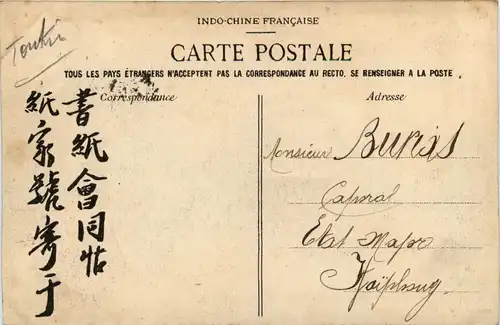 Tonkin
INDO-CHINE FRANÇAISE
CARTE POSTALE
TOUS LES PAYS ÉTRANGERS N'ACCEPTENT PAS LA CORRESPONDANCE AU RECTO. SE RENSEIGNER A LA POSTE
Correspondance
書紙會同帖
紙家號寄于
Adresse
Monsieur
Caporal
Etat Major
Haïphong